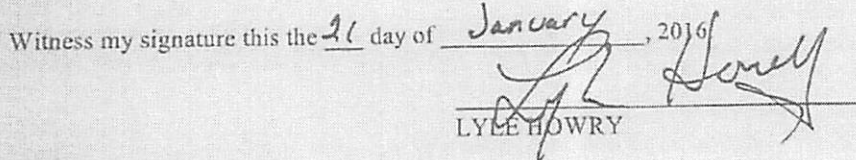 Witness my signature this the 21 day of January, 2016
LYLE HOWRY